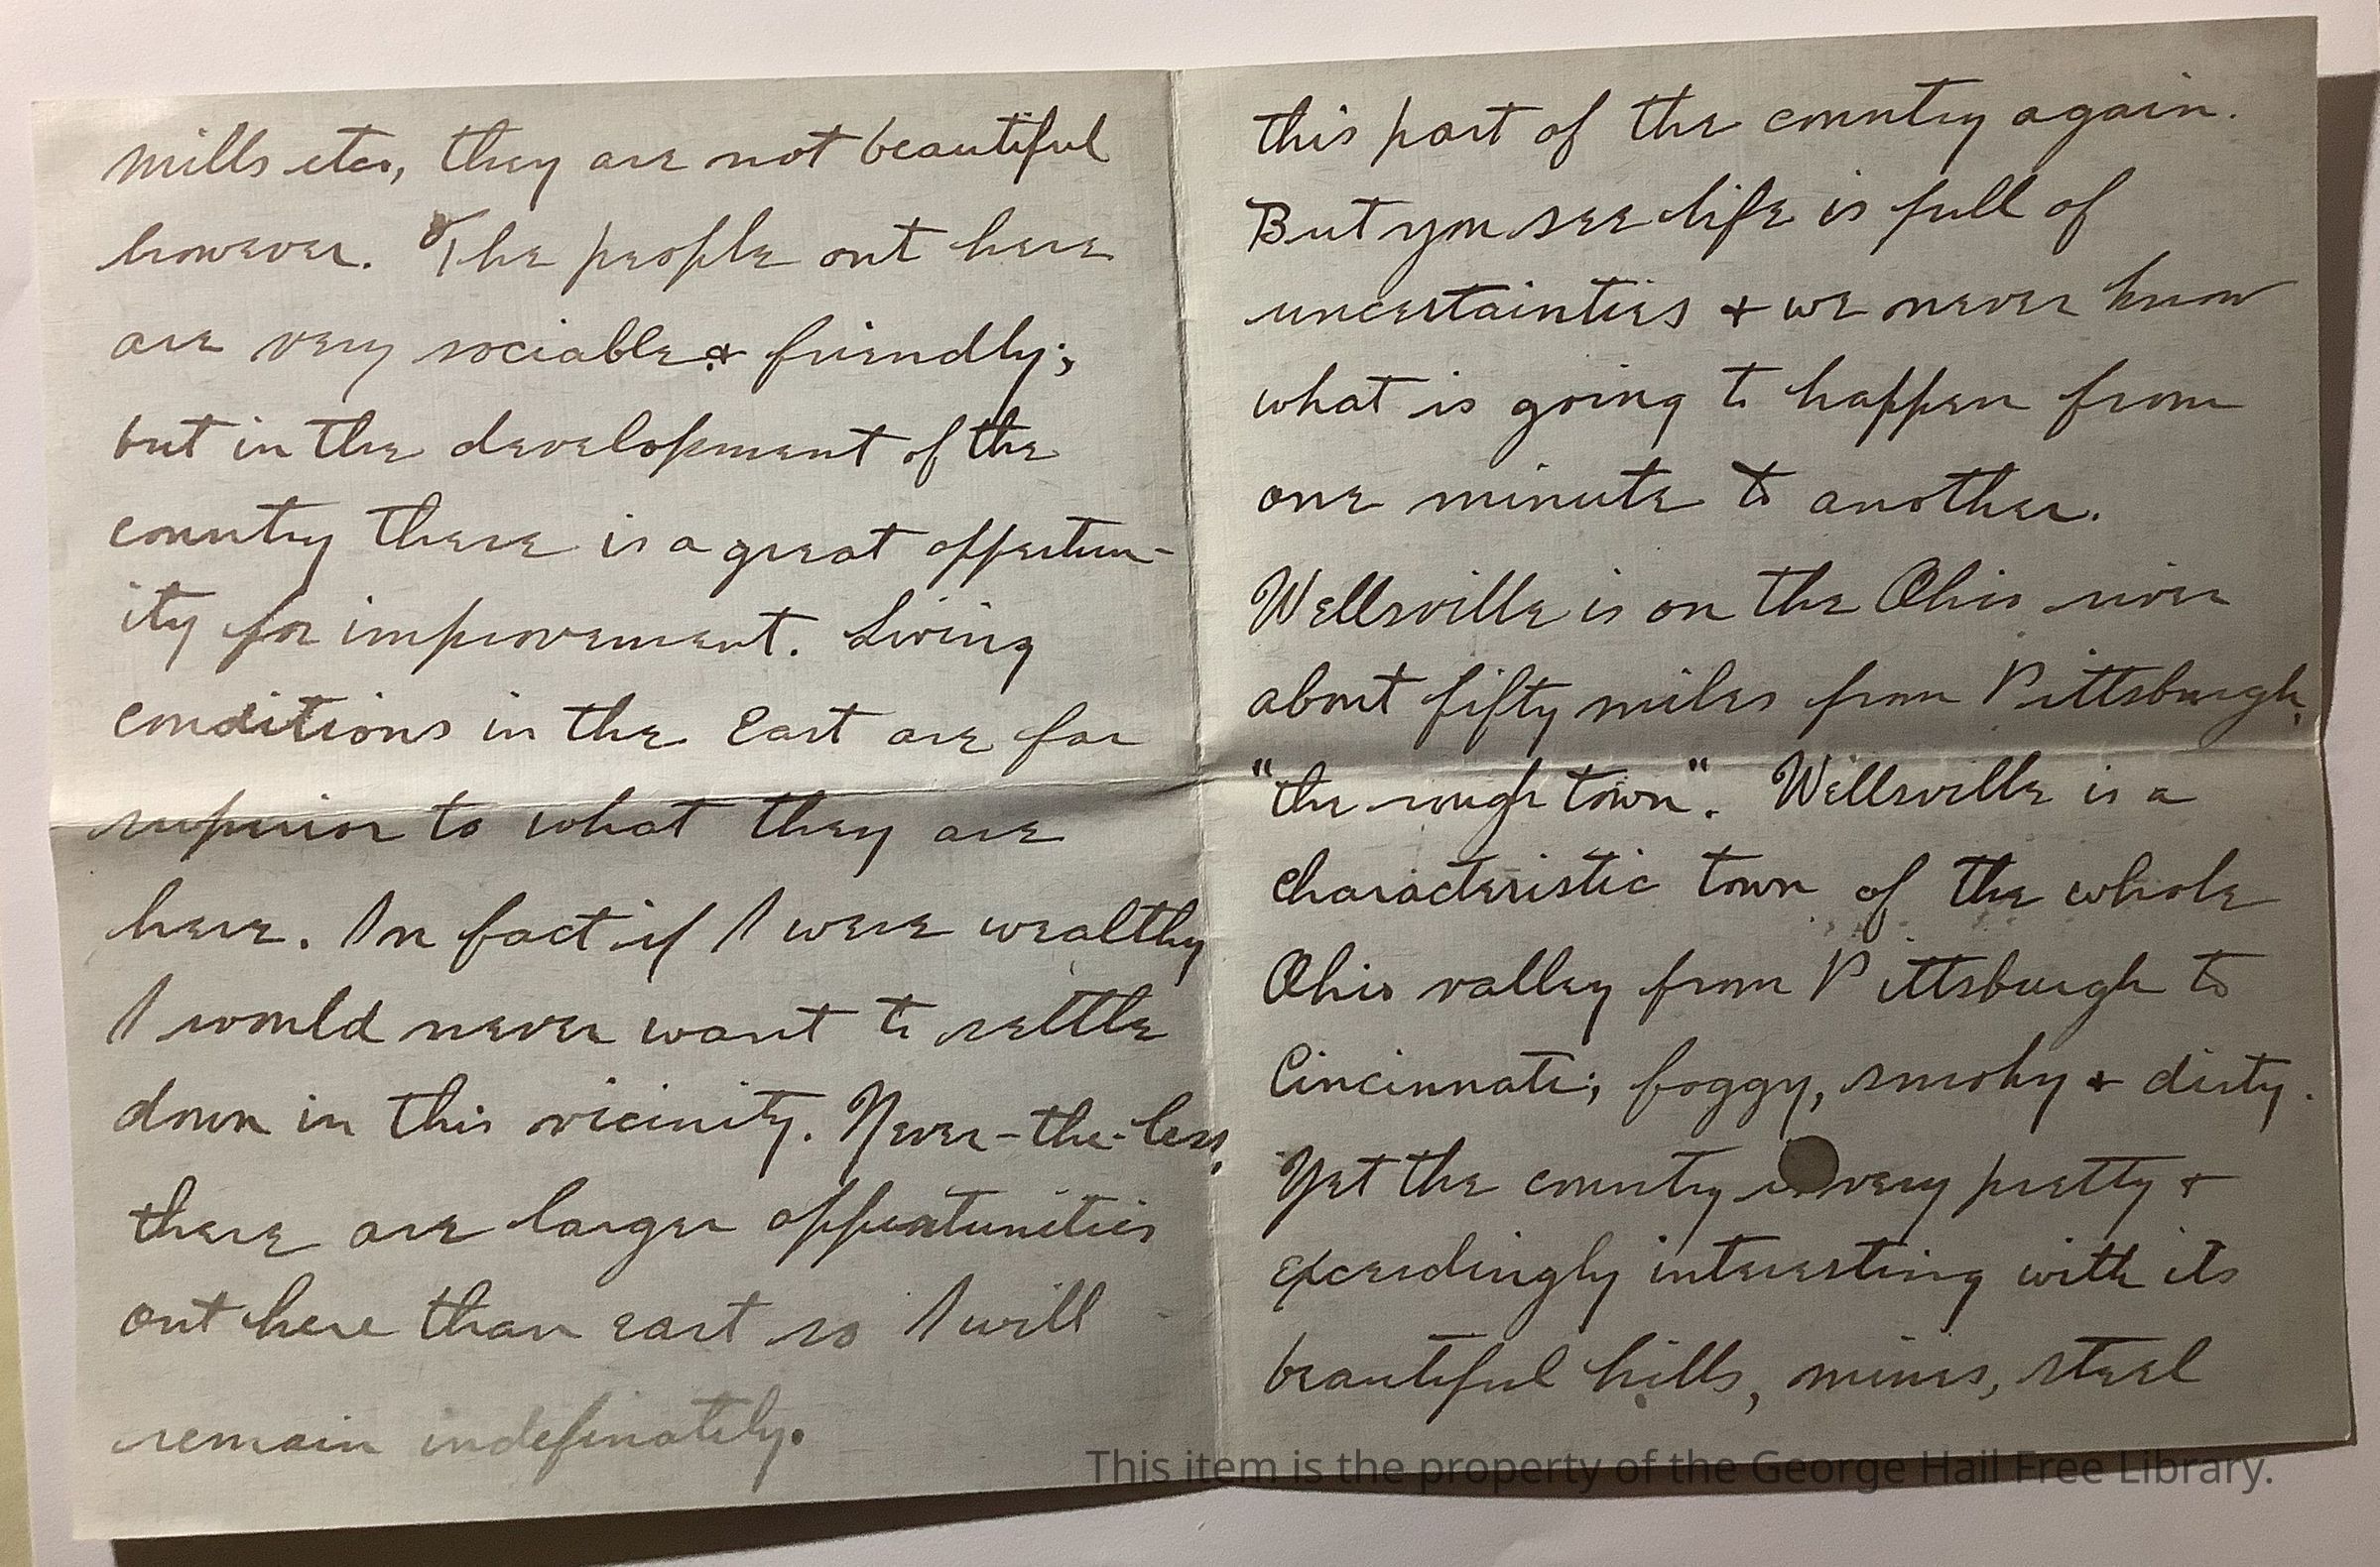 this part of the country again.
But you see life is full of
uncertainties + we never know
what is going to happen from
one minute to another.
Wellsville is on the Ohio river
about fifty miles from Pittsburgh,
"the rough town". Wellsville is a
characteristic town of the whole
Ohio valley from Pittsburgh to
Cincinnati; foggy, smoky + dirty.
Yet the country is very pretty +
exceedingly interesting with its
beautiful hills, mines, steel
mills etc., they are not beautiful
however. The people out here
are very sociable + friendly;
but in the development of the
country there is a great oppertun-
ity for improvement. Living
conditions in the East are far
superior to what they are
here. In fact if I were wealthy
I would never want to settle
down in this vicinity. Never-the-less,
there are larger oppertunities
out here than east so I will
remain indefinately.
This item is the property of the George Hail Free Library.